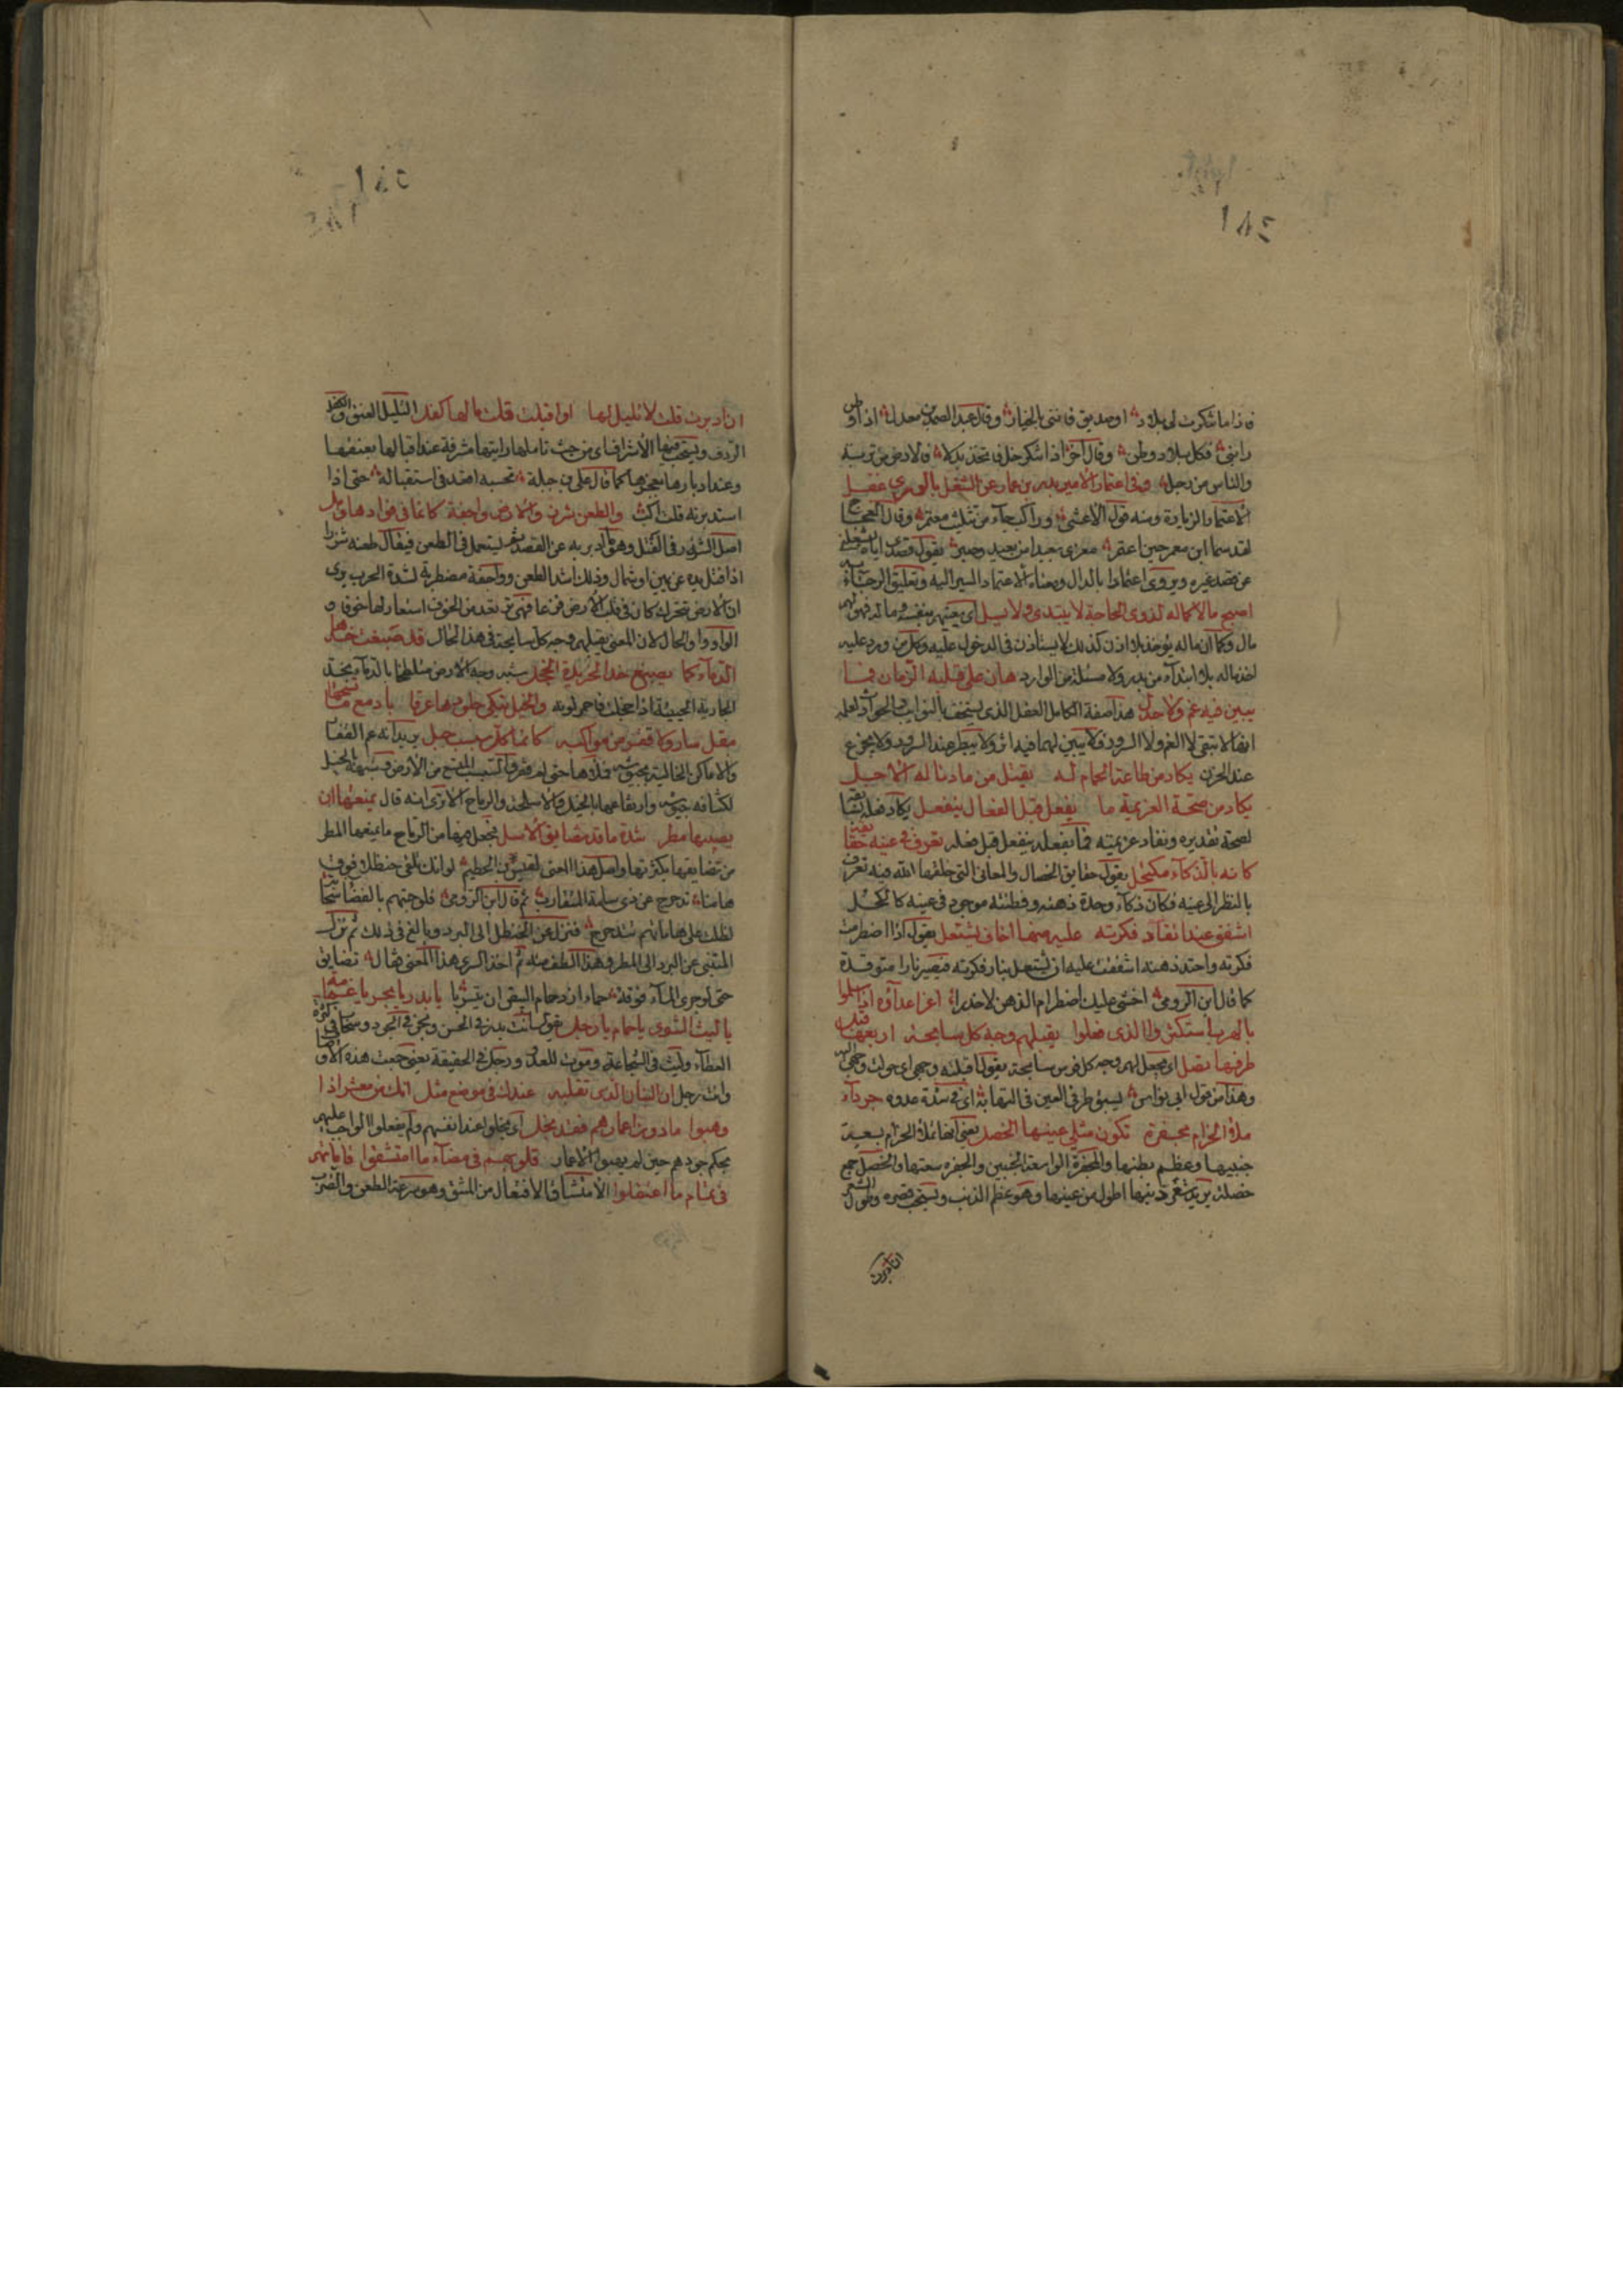 ١٨٤
فاذا ما شكرت لى بلاد او صديق فاننى بالخيار وقال عبد الصمد بن معدل اذا وطن
رابنى فكل بلاد وطن وقال آخر اذا شكر خل فاتخذ بدلا فالارض من تربة
والناس من رجل وفى اعتمار الامير بدر بن عمار عن الشغل بالورى شغل
الاعتمار الزيارة ومنه قول الاعشى وراكب جاء من تثليث معتمر وقال العجاج
لقد سما ابن معمر حين اعتمر مغزى بعيدا من بعيد وضبر يقول قصدى اياه
عن قصد غيره ويروى اعتمادا بالدال ومعناه الاعتماد السير اليه وتعليق الرجاء به
اصبح مالا كماله لذوى الحاجة لا يبتدى ولا يسل اى يعينهم بنفسه وماله فهو لهم
مال وكما ان ماله يؤخذ بلا اذن كذلك لا يستاذن فى الدخول عليه وكل من ورد عليه
اخذ ماله بلا ابتداء من بدر ولا مسئلة من الوارد هان على قلبه الزمان فما
يبين فيه غم ولا جذل هذا صفة الكامل العقل الذى يستخف بالنوايب والحوادث لعلمه
انها لا تبقى لا الغم ولا السرور فلا يبين لهما فيه اثر ولا يبطر عند السرور ولا يجزع
عند الحزن يكاد من طاعة الحمام له يقتل من ما دنا له الاجل
يكاد من صحة العزيمة ما يفعل قبل الفعال ينفعل
لصحة تقديره ونفاذ عزيمته فما يفعله ينفعل قبل فعله تعرف فى عينه حقايقه
كانه بالذكاء مكتحل يقول حقايق الخصال والمعانى التى خلقها الله فيه تعرف
بالنظر الى عينه فكان ذكاء وحدة ذهنه وفطنته موجود فى عينه كالكحل
اشفق عند اتقاد فكرته عليه منها اخاف يشتعل يقول اذا اضطرمت
فكرته واحتد ذهنه اشفقت عليه ان يشتعل بنار فكرته فيصير نارا متوقدة
كما قال ابن الرومى اخشى عليك اضطرام الذهن لا حذرا اغر اعداؤه اذا سلموا
بالهرب استكثروا الذى فعلوا يقبلهم وجه كل سابحة اربعها قبل
طرفها تصل اى يجعل لهم وجه كل فرس سابحة يقول اقبلته وجهى اى حولت وجهى اليه
وهذا من قول ابى نواس يسبق طرف العين فى التهابه اى فى شدة عدوه جرداء
ملء الحزام مجفرة تكون مثلى عسيبها الخصل يعنى انها تملأ الحزام بسعة
جنبيها وعظم بطنها والمجفرة الواسعة الجنبين والجفرة سعتها والخصل جمع
خصلة يريد شعر ذنبها اطول من عسيبها وهو عظم الذنب ويستحب قصره وطول الشعر
ان ادبرت
١٨٥
ان ادبرت قلت لا تليل لها او اقبلت قلت ما لها كفل التليل العنق والكفل
الردف ويستحب فيها الاشراف اى من حيث تاملها رايتها مشرفة عند اقبالها بعنقها
وعند ادبارها بعجزها كما قال على بن جبلة تحسبه اقعد فى استقباله حتى اذا
استدبرته قلت اكب والطعن شزر والارض واجفة كانما فى فؤادها وهل
اصل الشزر فى الفتل وهو ما ادبر به عن القصد ثم يستعمل فى الطعن فيقال طعنه شزرا
اذا فتل يده عن يمين او شمال وذلك اشد الطعن وواجفة مضطربة لشدة الحرب يرى
ان الارض تتحرك كان فى قلب الارض فزعا فهى ترتعد من الخوف استعار لها خوفا و
الواو واو الحال لان المعنى يقبلهم وجه كل سابحة فى هذا الحال قد صبغت خدها
الدماء كما يصبغ خد الخريدة الخجل شبه وجه الارض متلطخا بالدماء بخد
الجارية الحيية اذا خجلت فاحمر لونه والخيل تبكى جلودها عرقا بادمع ما تسحها
مقل سار ولا قفر من مواكبه كانما كل سبسب جبل يريد انه عم القفار
والاماكن الخالية بجيوشه فملأها حتى لم يقفر والسبسب المتسع من الارض وشبهه بالجبل
لكثافة جيشه وارتفاعها بالخيل والاسلحة والرماح الا ترى انه قال يمنعها ان
يصيبها مطر شدة ما قد تضايق الاسل يجعل فيها من الرماح ما يمنعها المطر
من تضايقها بكثرتها واصل هذا المعنى لقيس بن الخطيم لو انك تلقى حنظلا فوق
هامنا تدحرج عن ذى سامة المتقارب ثم قال ابن الرومى فلو حصبتهم بالفضاء سحابة
لظلت على هاماتهم تتدحرج فنزل عن الحنظل الى البرد وبالغ فى ذلك ثم نزل
المتنبى عن البرد الى المطر وهذا الطف منه ثم اخذ السرى هذا المعنى فقال تضايق
حتى لو جرى الماء فوقه حماه ازدحام البيض ان يتسربا يا بدر يا بحر يا غمامة
يا ليث الشرى يا حمام يا رجل يقول انت بدر فى الحسن وبحر فى الجود وسحاب فى كثرة
العطاء وليث فى الشجاعة وموت للعدو ورجل فى الحقيقة يعنى جمعت هذه الاوصاف
وانت رجل ان البنان الذى تقلبه عندك فى موضع مثل انك من معشر اذا
وهبوا ما دون اعمارهم فقد بخلوا اى بخلوا عند انفسهم ولم يفعلوا الواجب عليهم
بحكم جودهم حين لم يهبوا الاعمار قلوبهم فى مضاء ما امتشقوا قاماتهم
فى تمام ما اعتقلوا الامتشاق الافتعال من المشق وهو سرعة الطعن والضرب